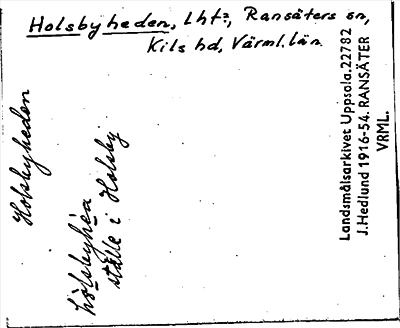 Holsbyheden, Lht?, Ransäters sn,
Kils hd, Värml. län.
Holsbyheden
hôlsbyhéa
ställe i Holsby
Landsmålsarkivet Uppsala. 22782
J. Hedlund 1916-54. RANSÄTER
VRML.